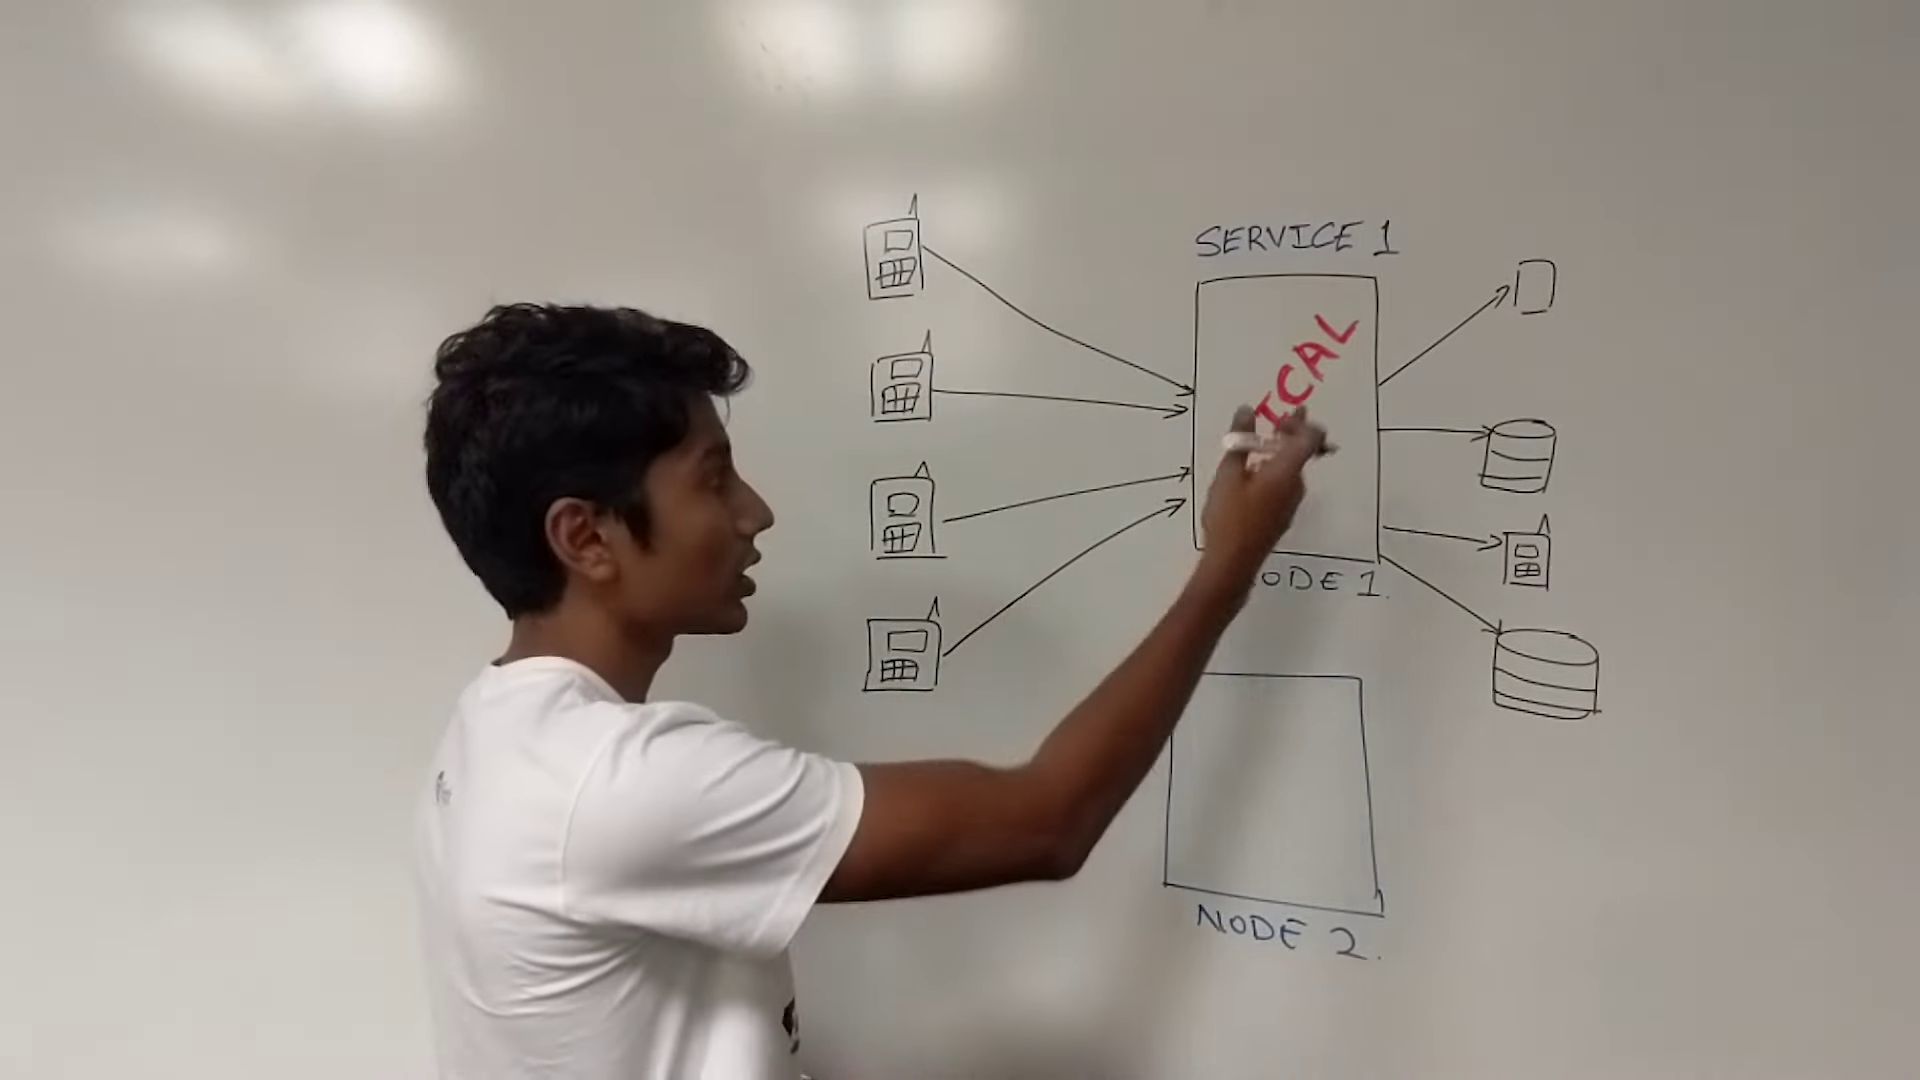 SERVICE 1
ICAL
ODE 1.
NODE 2.